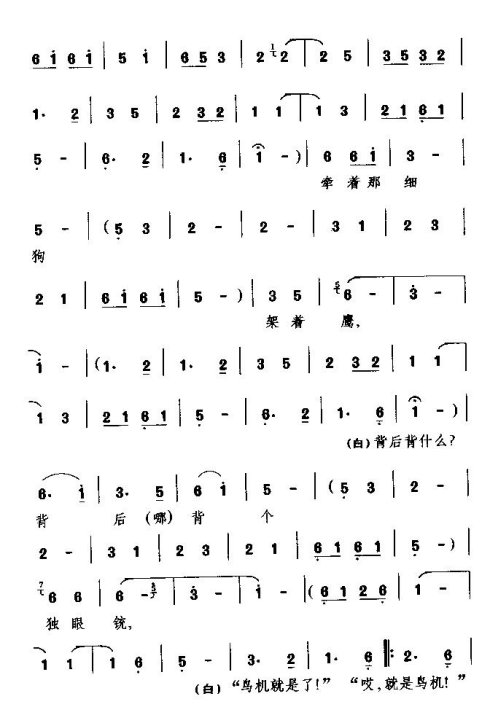 6 1 6 1 | 5 1 | 6 5 3 | 2 2 | 2 5 | 3 5 3 2 |
1· 2 | 3 5 | 2 3 2 | 1 1 | 1 3 | 2 1 6 1 |
5 - | 6· 2 | 1· 6 | 1 -) | 6 6 1 | 3 - |
牵着那细
5 - | (5 3 | 2 - | 2 - | 3 1 | 2 3 |
狗
2 1 | 6 1 6 1 | 5 -) | 3 5 | 6 - | 3 - |
架着鹰,
1 - | (1· 2 | 1· 2 | 3 5 | 2 3 2 | 1 1 |
1 3 | 2 1 6 1 | 5 - | 6· 2 | 1· 6 | 1 -) |
(白)背后背什么?
6· 1 | 3· 5 | 6 1 | 5 - | (5 3 | 2 - |
背后(哪)背个
2 - | 3 1 | 2 3 | 2 1 | 6 1 6 1 | 5 -) |
6 6 | 6 - | 3 - | 1 - | (6 1 2 6 | 1 - |
独眼铳,
1 1 | 1 6 | 5 - | 5 3 | 2 - | 1· 6 |: 2· 6 |
(白)“鸟机就是了!” “哎,就是鸟机!”